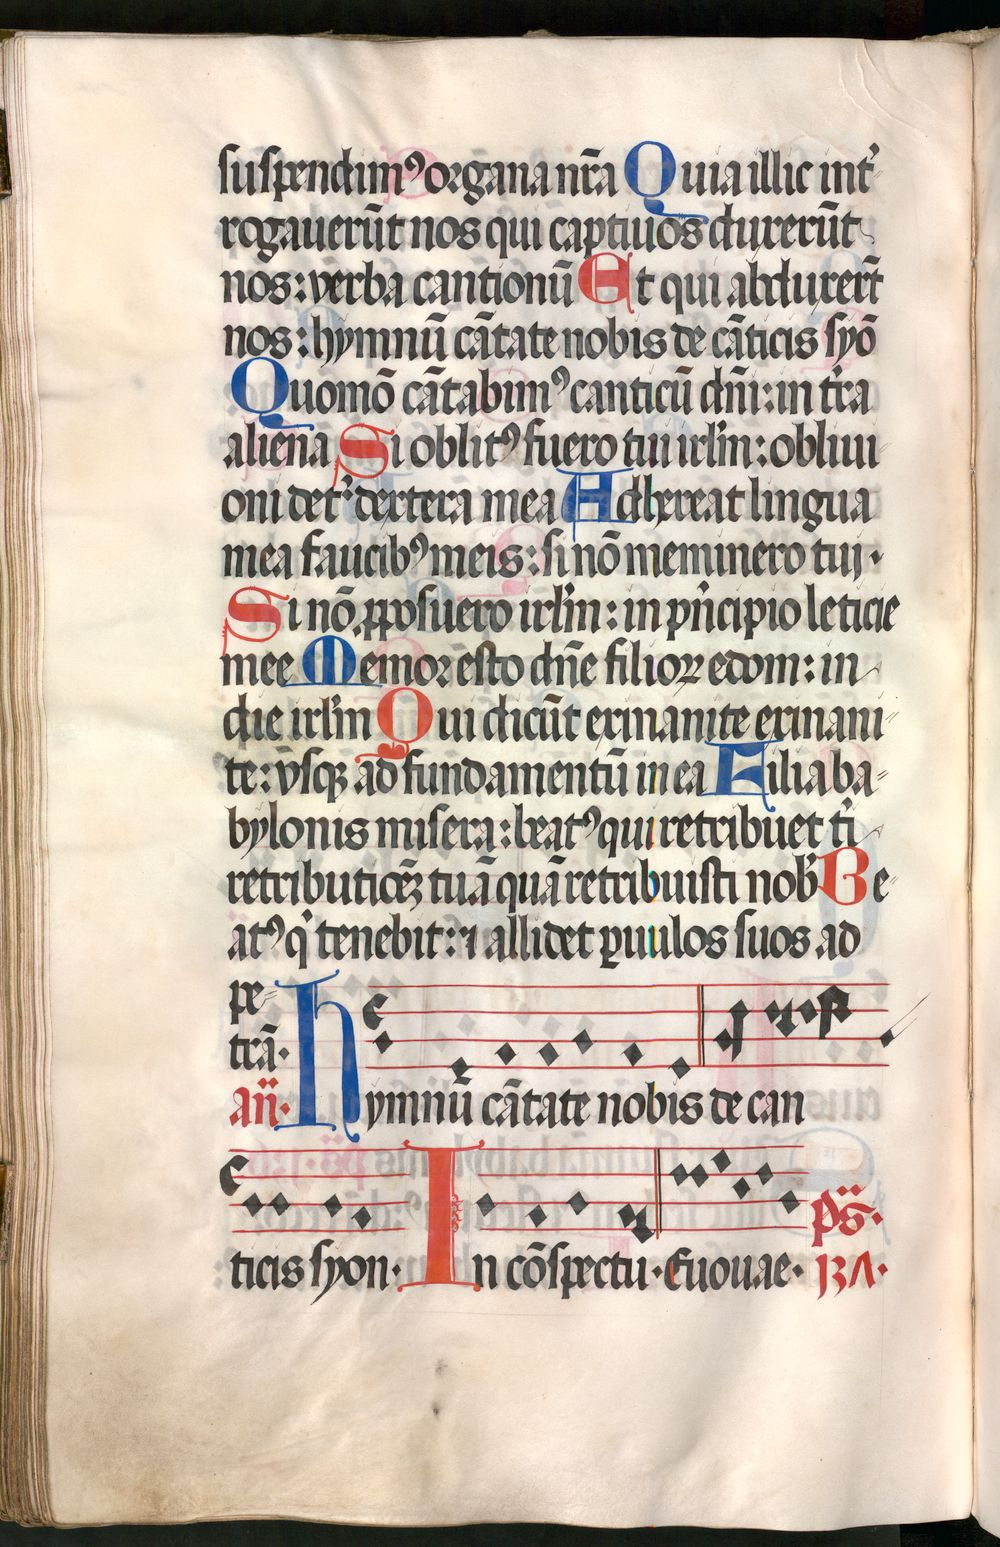 suspendimꝰ organa nr̄a Quia illic int᷑
rogauerūt nos qui captiuos duxerūt
nos: verba cantionū Et qui abduxer̄t
nos: hymnū cātate nobis de cāticis syō
Quomō cātabimꝰ canticū dn̄i: in tr̄a
aliena Si oblitꝰ fuero tui irl̄m: obliui
oni det᷑ dextera mea Adhereat lingua
mea faucibꝰ meis: si nō meminero tui.
Si nō ꝓposuero irl̄m: in pͥncipio leticie
mee Memor esto dn̄e filioꝝ edom: in
die irl̄m Qui dicūt exinanite exinani-
te: vsqꝫ ad fundamentū in ea Filia ba-
bylonis misera: beatꝰ qui retribuet tͥ
retributiōeꝫ tuā quā retribuisti nob᷑ Be-
atꝰ qͥ tenebit: ⁊ allidet ꝑuulos suos ad
pe-
trā.
an̄. Hymnū cātate nobis de can
ticis syon. In cōspectu. Euouae. ps̄.
137.